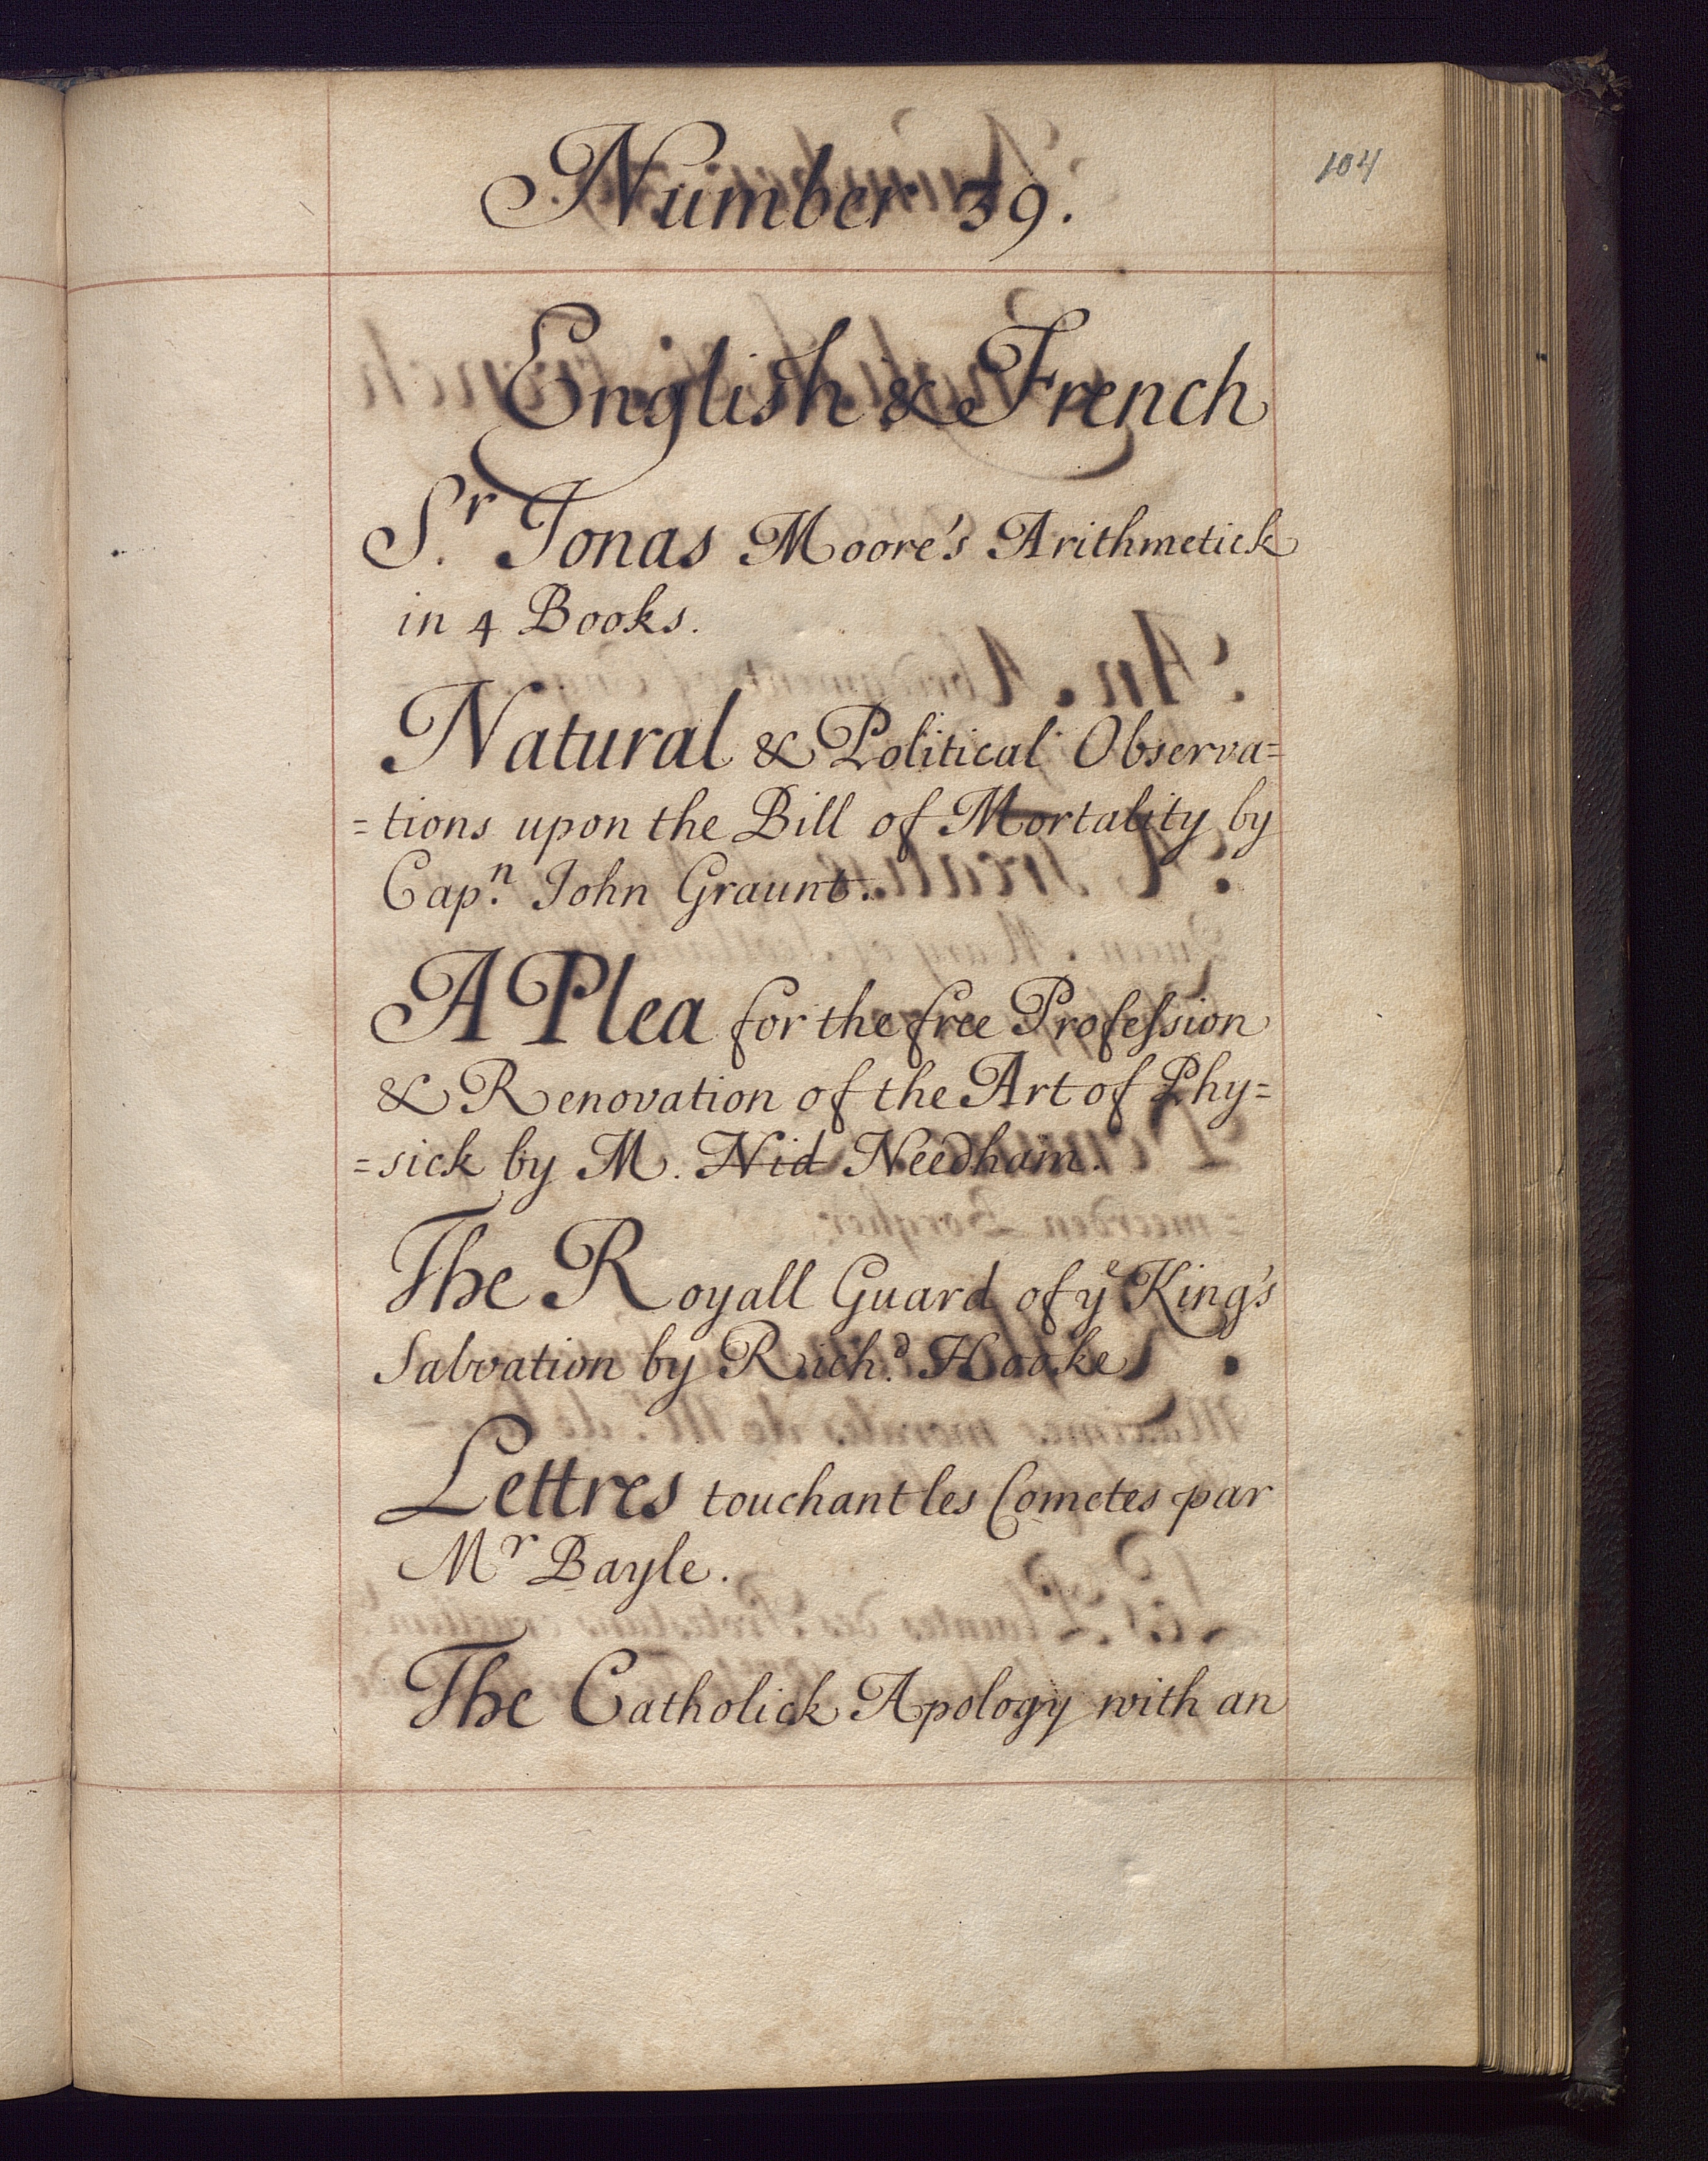 Number 39.
104
English & French
Sr. Jonas Moore's Arithmetick
in 4 Books.
Natural & Political Observa=
=tions upon the Bill of Mortality by
Capn. John Graunt.
A Plea for the free Profession
& Renovation of the Art of Phy=
=sick by M. Nid Needham.
The Royall Guard of ye King's
Salvation by Richd. Hooke
Lettres touchant les Cometes par
Mr Bayle.
The Catholick Apology with an